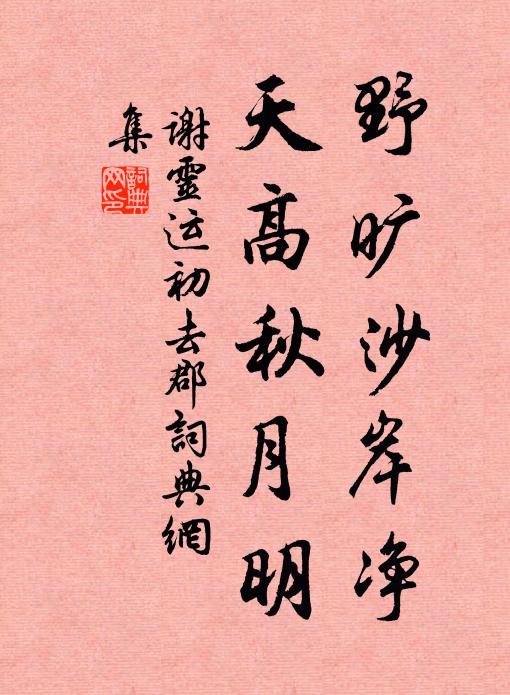 野旷沙岸净
天高秋月明
谢灵运初去郡詞典網
集
詞典
网印